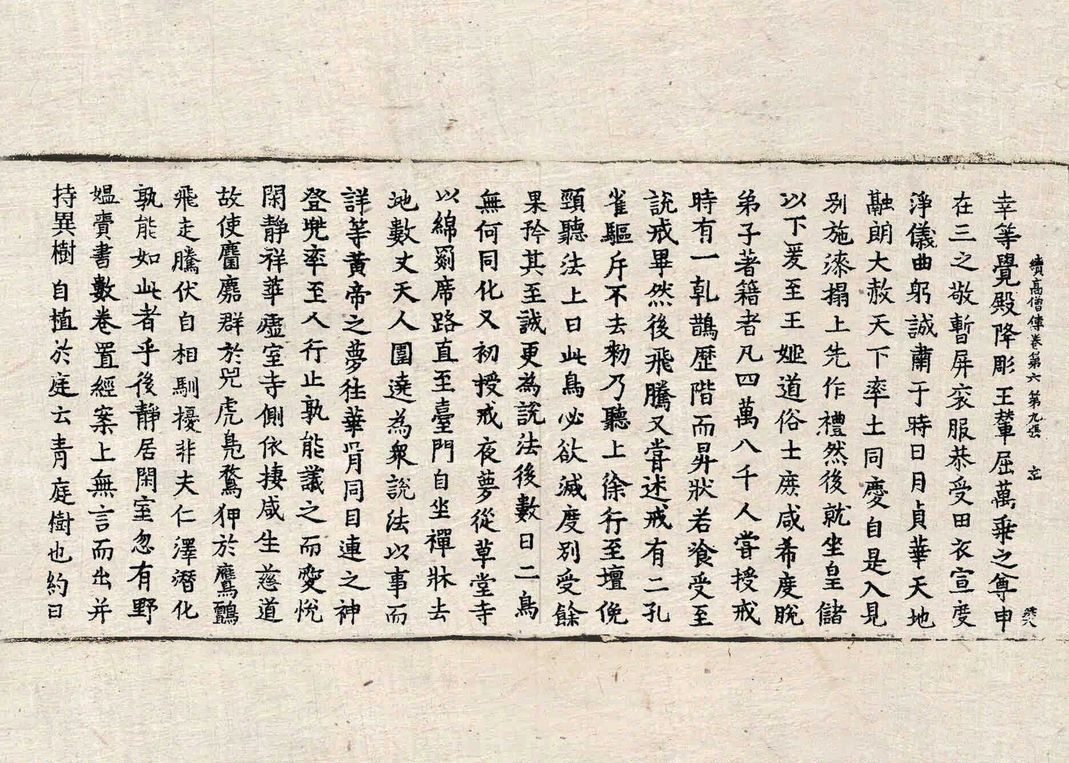 續高僧傳卷第六 第九張
幸等覺殿降彫玉輦屈萬乘之尊申
在三之敬暫屏衮服恭受田衣宣度
淨儀曲躬誠肅于時日月貞華天地
融朗大赦天下率土同慶自是入見
別施漆榻上先作禮然後就坐皇儲
以下爰至王姬道俗士庶咸希度脫
弟子著籍者凡四萬八千人嘗授戒
時有一乹鵲歷階而昇狀若飡受至
說戒畢然後飛騰又嘗述戒有二孔
雀驅斥不去勑乃聽上徐行至壇俛
頸聽法上曰此鳥必欲滅度別受餘
果矜其至誠更為說法後數日二鳥
無何同化又初授戒夜夢從草堂寺
以綿罽席路直至臺門自坐禪牀去
地數丈天人圍遶為衆說法以事而
詳等黃帝之夢往華胥同目連之神
登兠率至人行止孰能議之而愛悅
閑靜祥華虛室寺側依棲咸生慈道
故使麕麚群於兕虎鳧鶩狎於鷹鸇
飛走騰伏自相馴擾非夫仁澤潛化
孰能如此者乎後靜居閑室忽有野
媪賫書數卷置經案上無言而出并
持異樹自植於庭云青庭樹也約曰